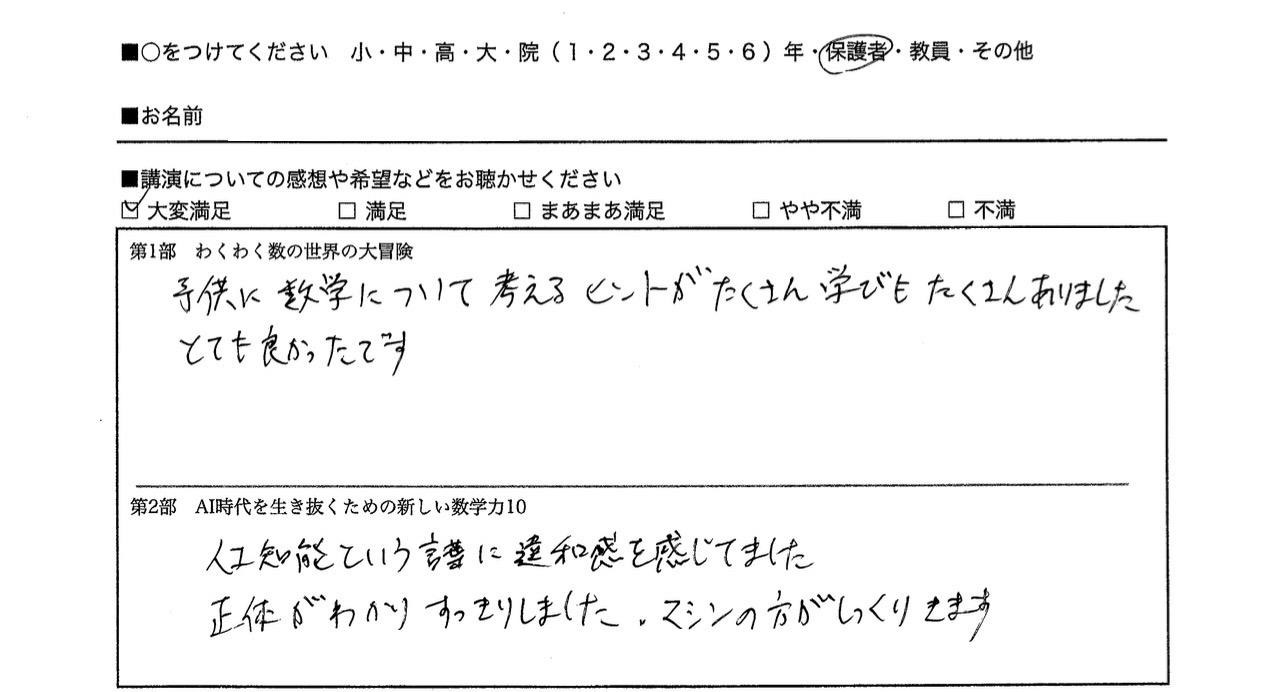 ■○をつけてください 小・中・高・大・院(1・2・3・4・5・6)年・保護者・教員・その他
■お名前
■講演についての感想や希望などをお聴かせください
☑ 大変満足 □ 満足 □ まあまあ満足 □ やや不満 □ 不満
第1部 わくわく数の世界の大冒険
子供に数学について考えるヒントがたくさん学びもたくさんありました
とても良かったです
第2部 AI時代を生き抜くための新しい数学力10
人工知能という言葉に違和感を感じてました
正体がわかりすっきりしました。マシンの方がしっくりきます